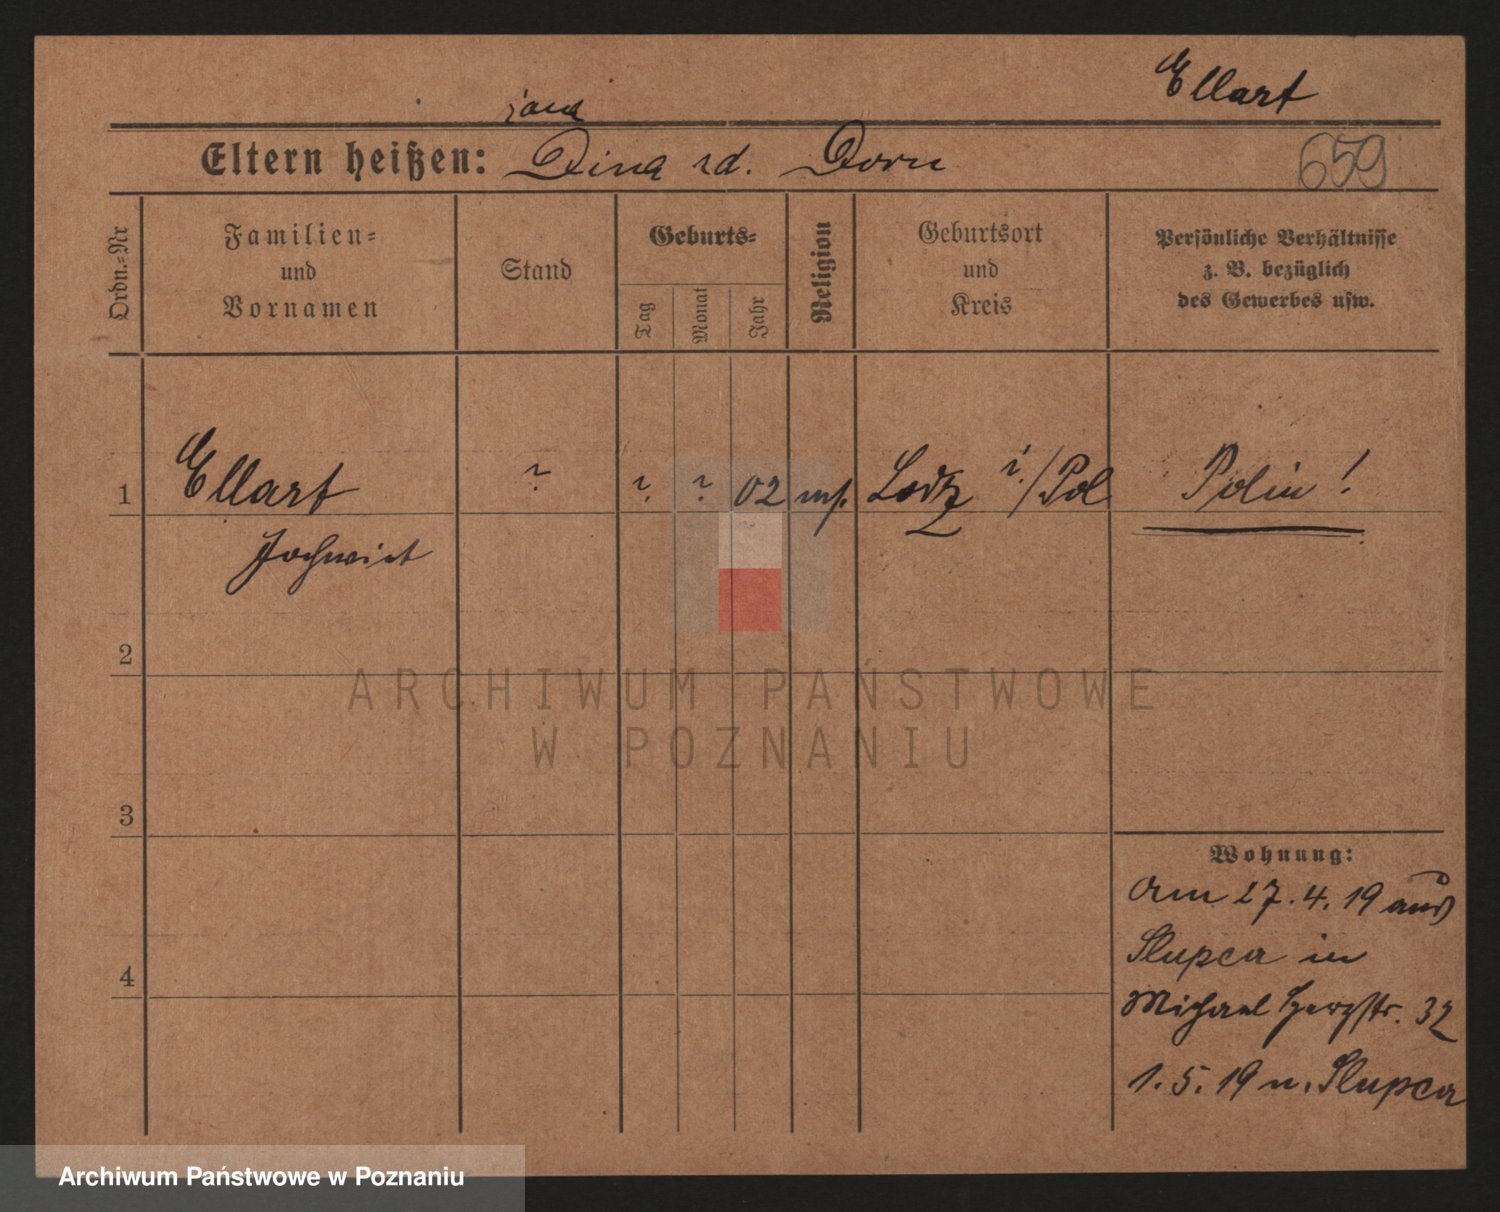 Ellart
Eltern heißen: Dina rd. Dorn
659
Ordn.-Nr
Familien-
und
Vornamen
Stand
Geburts-
Tag
Monat
Jahr
Religion
Geburtsort
und
Kreis
Persönliche Verhältnisse
z. B. bezüglich
des Gewerbes usw.
1 Ellart ? ? ? 02 Lodz i/Pol Polin!
2
3
4
Wohnung:
Am 27.4.19 aus
Slupca in
Michael Herzstr. 32
1.5.19 n. Slupca
ARCHIWUM PAŃSTWOWE
W POZNANIU
Archiwum Państwowe w Poznaniu